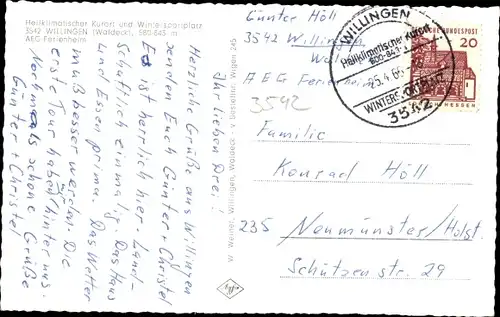 Heilklimatischer Kurort und Wintersportplatz
3542 WILLINGEN (Waldeck), 580-843 m
AEG-Ferienheim
Ihr lieben Drei!
Herzliche Grüße aus Willingen
senden Euch Günter + Christel
Es ist herrlich hier. Land-
schaftlich einmalig. Das Haus
und Essen prima. Das Wetter
muß besser werden. Die
erste Tour haben wir hinter uns.
Nochmals schöne Grüße
Günter + Christel
Willingen, Waldeck
Günter Höll
3542 Willingen
Waldeck
AEG Ferienheim
3542
WILLINGEN
Heilklimatischer Kurort
600-843
WINTERSPORTPLATZ
3542
DEUTSCHE BUNDESPOST
20
HESSEN
Familie
Konrad Höll
235 Neumünster/Holst.
Schützenstr. 29